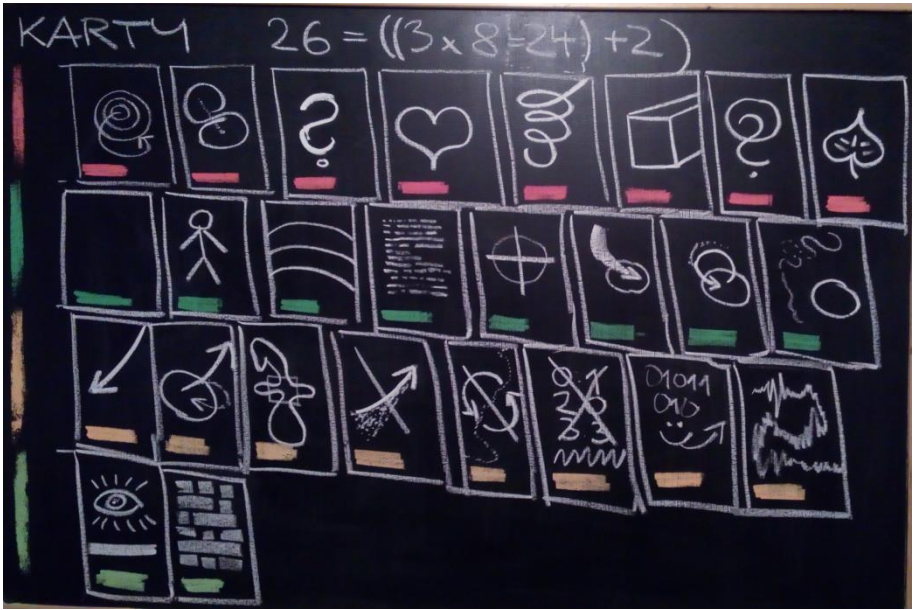 KARTY 26 = ((3 x 8 = 24) + 2)
?
?
01011
010